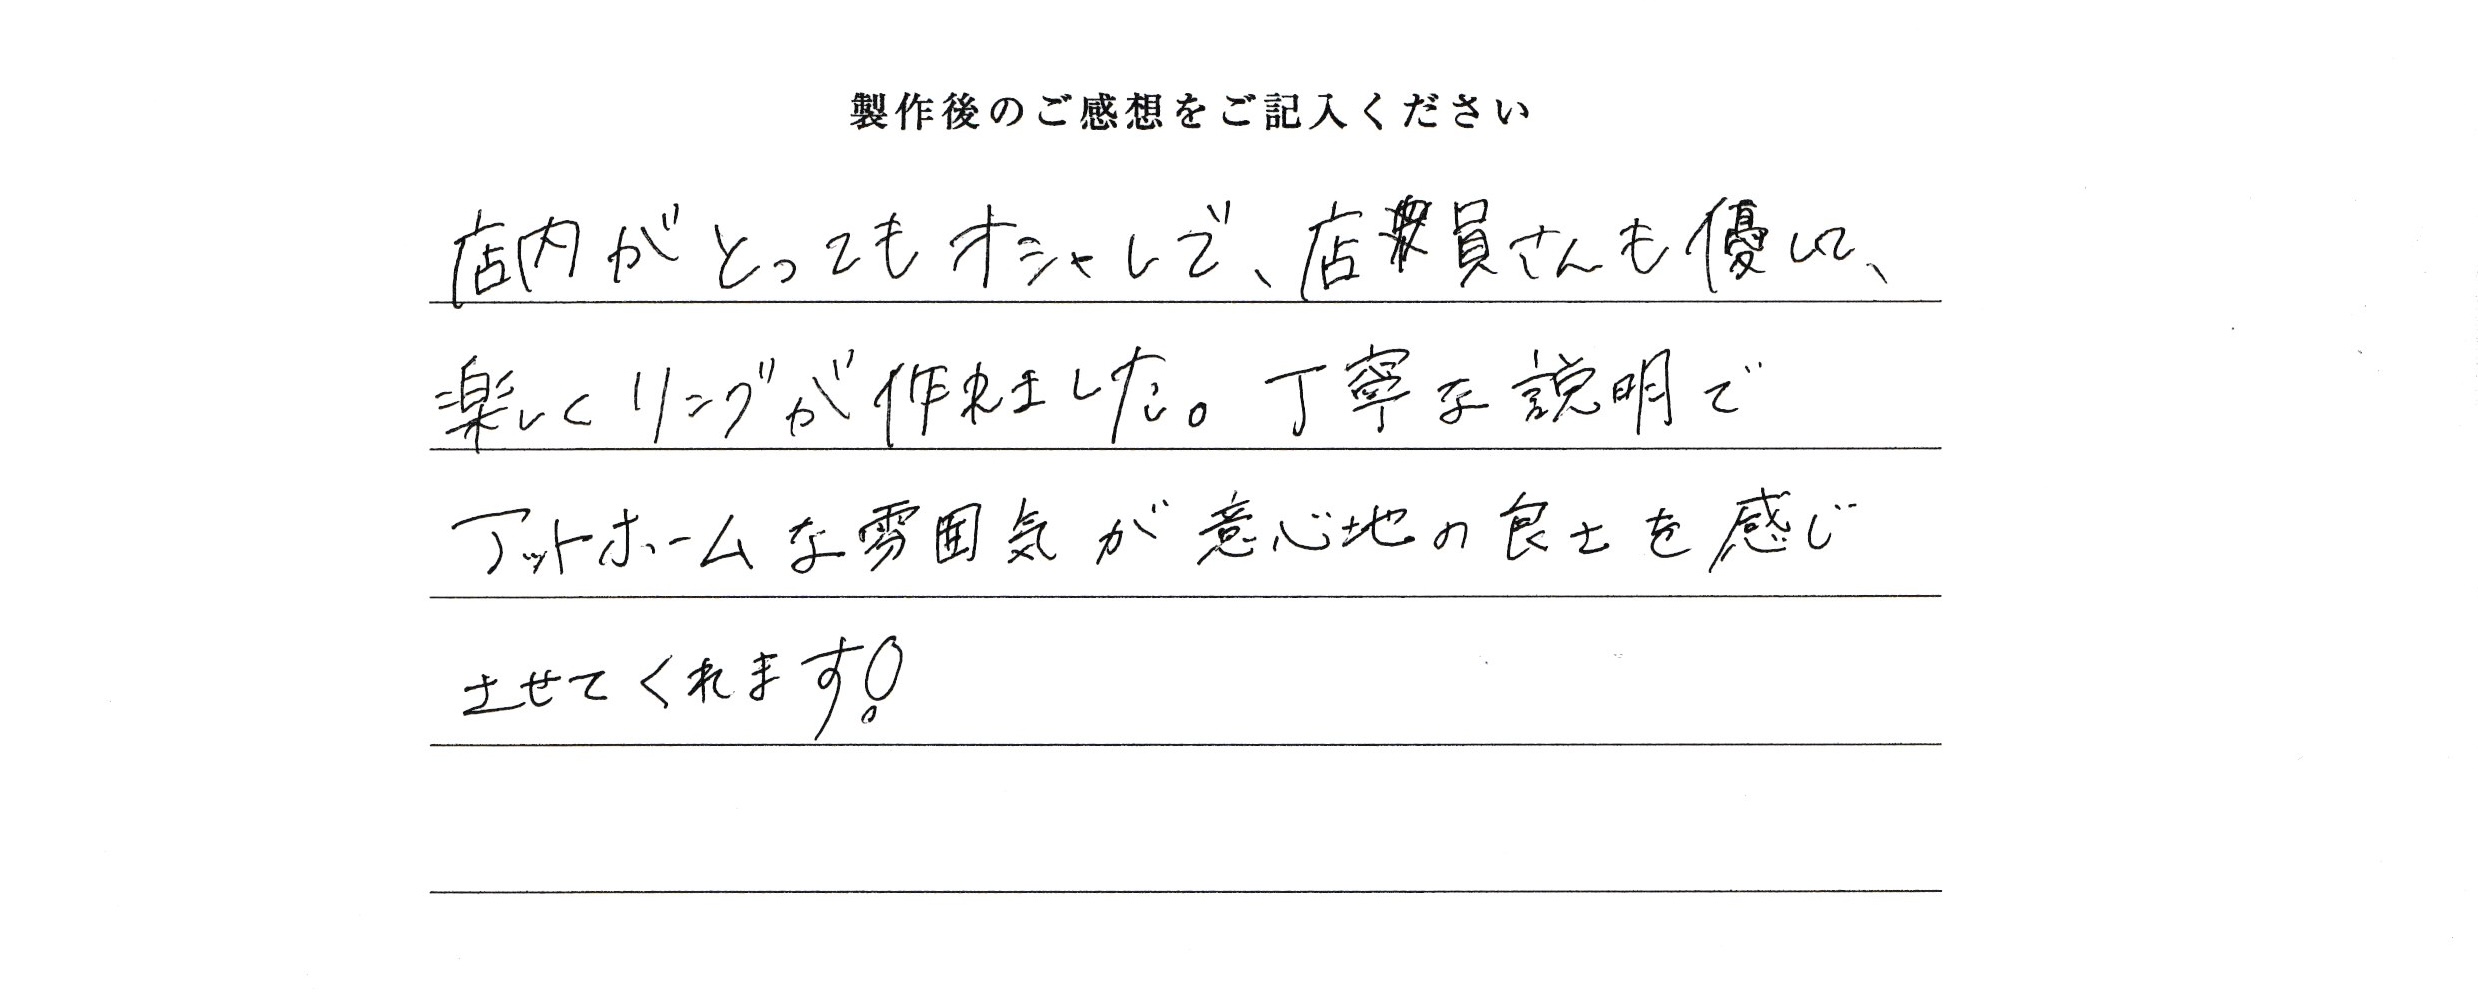 製作後のご感想をご記入ください
店内がとってもオシャレで、店員さんも優しく、
楽しくリングが作れました。丁寧な説明で
アットホームな雰囲気が意心地の良さを感じ
させてくれます!